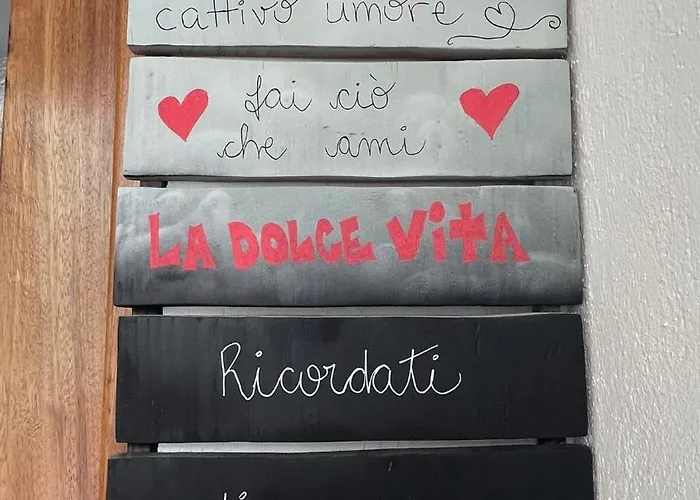 cattivo umore
fai ciò
che ami
LA DOLCE VitA
Ricordati
di